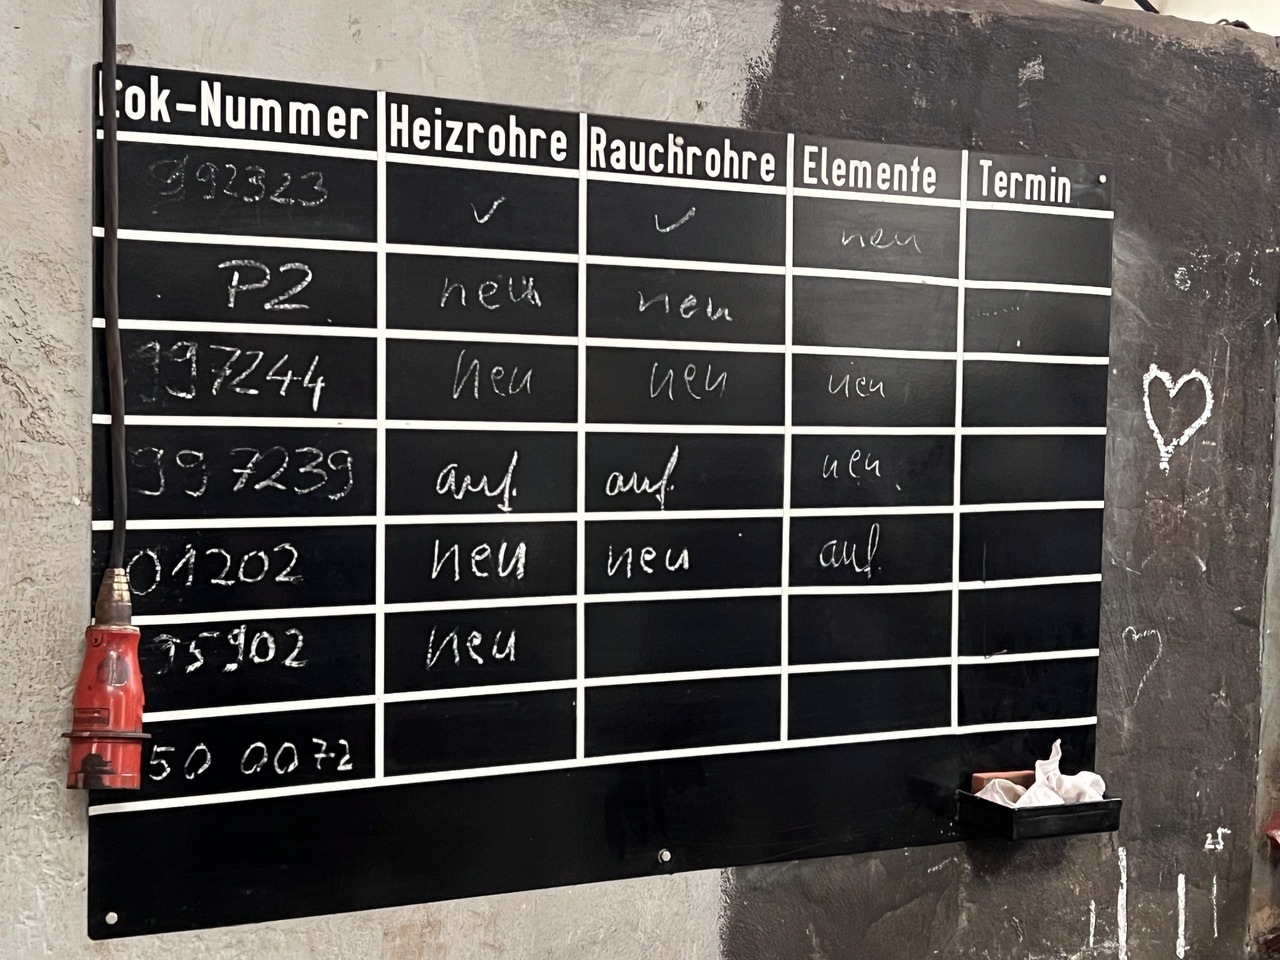 Lok-Nummer Heizrohre Rauchrohre Elemente Termin
992323 ✓ ✓ neu
P2 neu neu
997244 neu neu neu
997239 auf. auf. neu
01202 neu neu auf.
95902 neu
50 0072
25